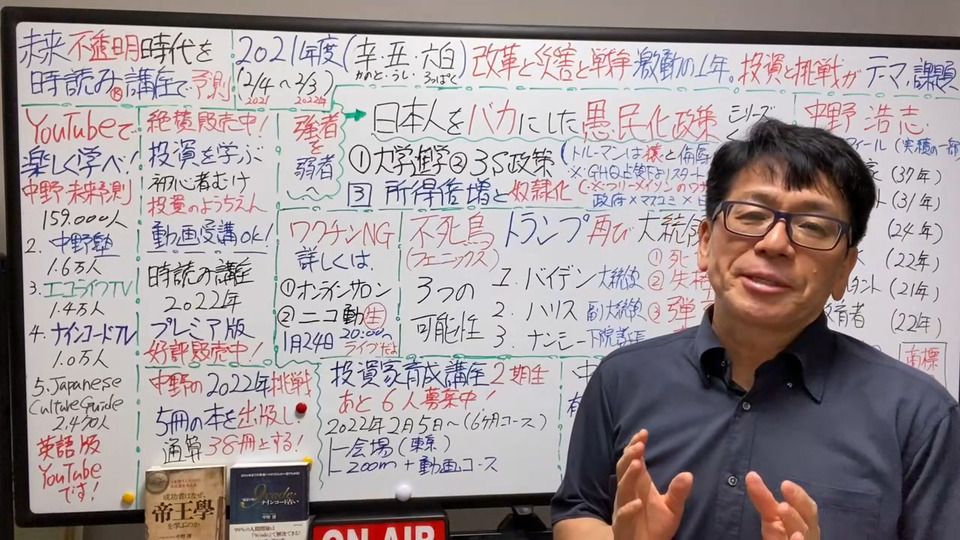 未来不透明時代を
時読み®講座で予測
2021年度(辛・丑・六白)
かのと・うし ろっぱく
(2/4〜2/3)
2021 2022年
改革と災害と戦争激動の1年。投資と挑戦がテマ,課題
YouTubeで
楽しく学べ!
中野未来予測
159.000人
2. 中野塾
1.6万人
3.エコライフTV
1.4万人
4. ナインコードTV
1.0万人
5.Japanese
Culture Guide
2.470人
英語版
YouTube
です!
絶賛販売中!
投資を学ぶ
初心者むけ
投資のようちえん
動画受講OK!
時読み講座
2022年
プレミア版
好評販売中!
中野の2022年挑戦
5冊の本を出版し
通算38冊とする!
強者
を
弱者
へ
日本人をバカにした愚民化政策
シリーズ
①大学進学②3S政策
③ 所得倍増と奴隷化
(トルーマンは猿と侮辱
※GHQ占領下よりスタート
(※フリーメイソンのワザ
政府×マスコミ×
ワクチンNG
詳しくは
①オンラインサロン
②ニコ動生
1月24日 20:00
ライブだよ
不死鳥
(フェニックス)
トランプ再び大統領
3つの
可能性
1. バイデン大統領
2. ハリス 副大統領
3. ナンシー下院議長
①死
②失格
③弾
投資家育成講座2期生
あと6人募集中!
2022年2月5日〜(6ヶ月コース)
会場(東京)
zoom+動画コース
中野 浩志
フィール(実積の一部)
家(37年)
ト(31年)
(24年)
(22年)
タント(21年)
教育者(22年)
南標
成功者はなぜ、
帝王學
を学ぶのか
中野 博
9code
ナインコード占い
中野 博
ON AIR